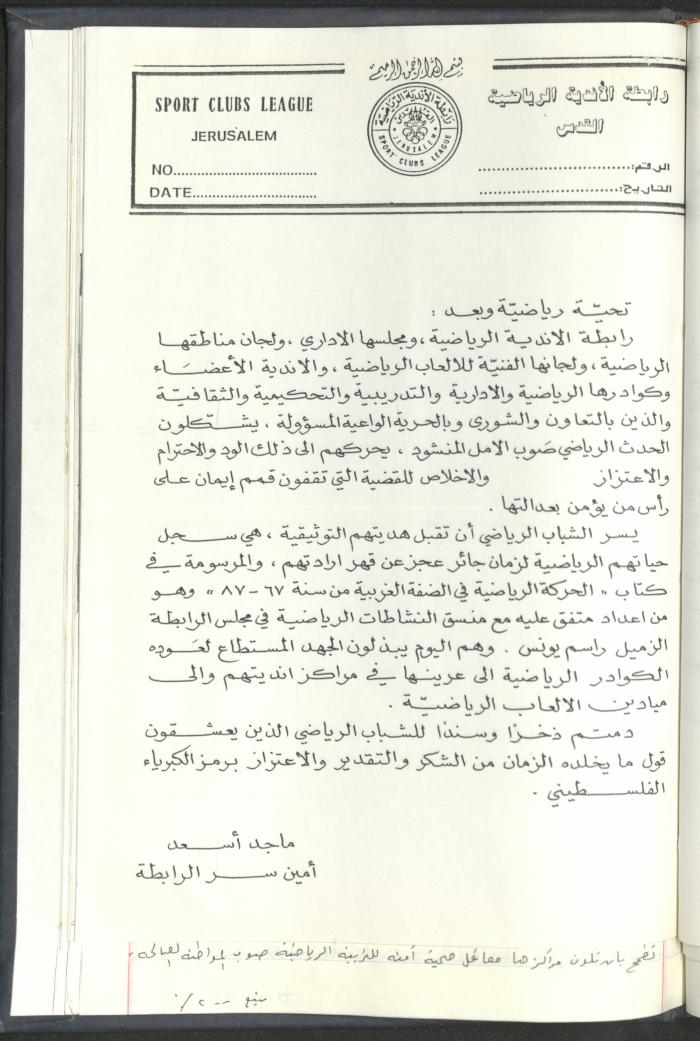 بسم الله الرحمن الرحيم
SPORT CLUBS LEAGUE
JERUSALEM
NO.
DATE
رابطة الأندية الرياضية
القدس
SPORT CLUBS LEAGUE
JERUSALEM
رابطة الأندية الرياضية
القدس
الرقم:
التاريخ:
تحيّة رياضيّة وبعد :
رابطة الاندية الرياضية ، ومجلسها الاداري ، ولجان مناطقها
الرياضية ، ولجانها الفنيّة للالعاب الرياضية ، والاندية الأعضاء
وكوادرها الرياضية والادارية والتدريبية والتحكيمية والثقافيّة
والذين بالتعاون والشورى وبالحرية الواعية المسؤولة ، يشتكلون
الحدث الرياضي صَوب الامل المنشود ، يحركهم الى ذلك الود والاحترام
والاعتزاز والاخلاص للقضية التي تقفون قمم إيمان على
رأس من يؤمن بعدالتها .
يسر الشباب الرياضي أن تقبل هديتهم التوثيقية ، هي سجل
حياتهم الرياضية لزمان جائر عجز عن قهر ارادتهم ، والمرسومة في
كتاب " الحركة الرياضية في الضفة الغربية من سنة ٦٧-٨٧ " وهو
من اعداد متفق عليه مع منسق النشاطات الرياضية في مجلس الرابطة
الزميل راسم يونس . وهم اليوم يبذلون الجهد المستطاع لعَوده
الكوادر الرياضية الى عرينها في مراكز انديتهم والى
ميادين الالعاب الرياضيّة .
دمتم ذخرًا وسندًا للشباب الرياضي الذين يعشقون
قول ما يخلده الزمان من الشكر والتقدير والاعتزاز برمز الكبرياء
الفلسطيني .
ماجد أسعد
أمين سر الرابطة
بان تكون مراكزها معاقل آمنه للتربية الرياضية صوب المواطنة الصالحه
يتبع